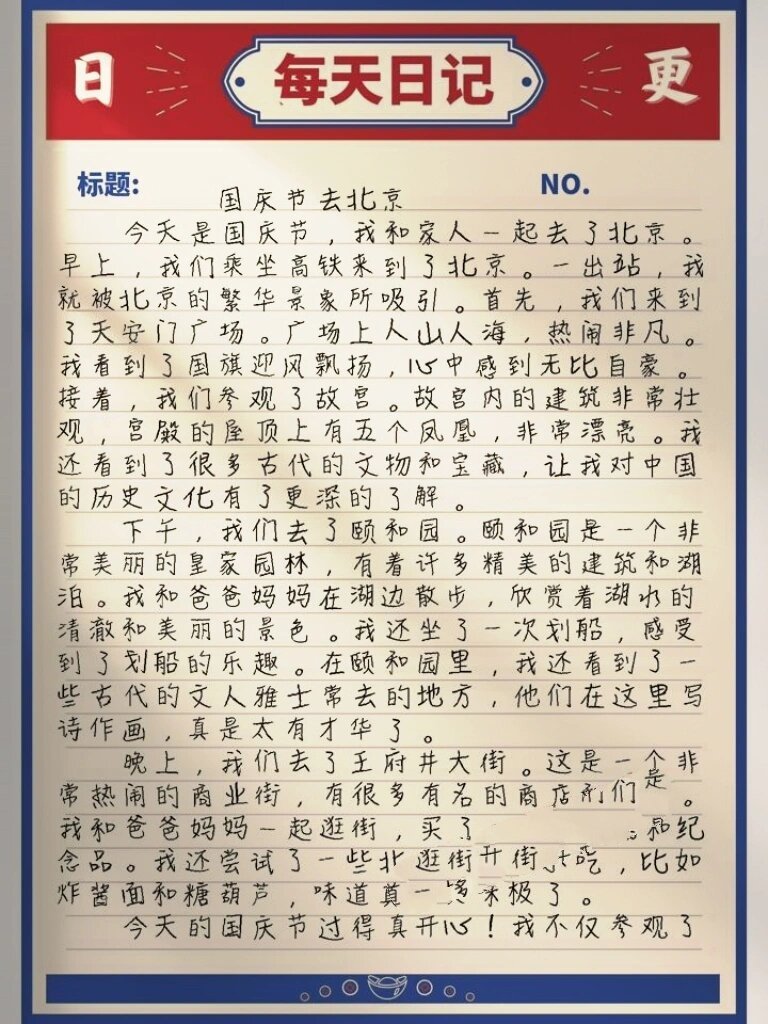 日 每天日记 更
标题: NO.
国庆节去北京
今天是国庆节，我和家人一起去了北京。
早上，我们乘坐高铁来到了北京。一出站，我
就被北京的繁华景象所吸引。首先，我们来到
了天安门广场。广场上人山人海，热闹非凡。
我看到了国旗迎风飘扬，心中感到无比自豪。
接着，我们参观了故宫。故宫内的建筑非常壮
观，宫殿的屋顶上有五个凤凰，非常漂亮。我
还看到了很多古代的文物和宝藏，让我对中国
的历史文化有了更深的了解。
下午，我们去了颐和园。颐和园是一个非
常美丽的皇家园林，有着许多精美的建筑和湖
泊。我和爸爸妈妈在湖边散步，欣赏着湖水的
清澈和美丽的景色。我还坐了一次划船，感受
到了划船的乐趣。在颐和园里，我还看到了一
些古代的文人雅士常去的地方，他们在这里写
诗作画，真是太有才华了。
晚上，我们去了王府井大街。这是一个非
常热闹的商业街，有很多有名的商店 们 是 。
我和爸爸妈妈一起逛街，买了 和纪
念品。我还尝试了一些北 逛街 街 吃，比如
炸酱面和糖葫芦，味道 一 极了。
今天的国庆节过得真开心！我不仅参观了